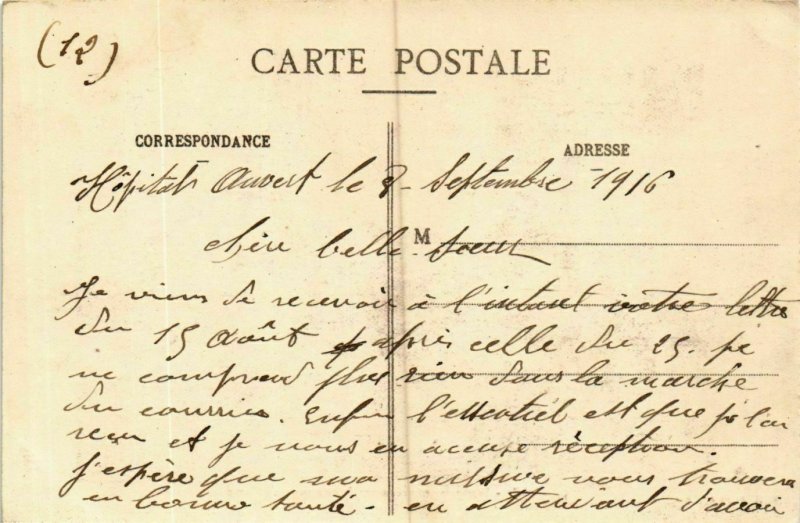 (12)
CARTE POSTALE
CORRESPONDANCE
ADRESSE
Hôpital Auvert le 8 Septembre 1916
M
chère belle-soeur
Je viens de recevoir à l'instant votre lettre
du 15 Août après celle du 25. je
ne comprend plus rien dans la marche
du courrier. Enfin l'essentiel est que je l'ai
reçu et je vous en accuse réception.
J'espère que ma missive vous trouvera
en bonne santé - en attendant d'avoir